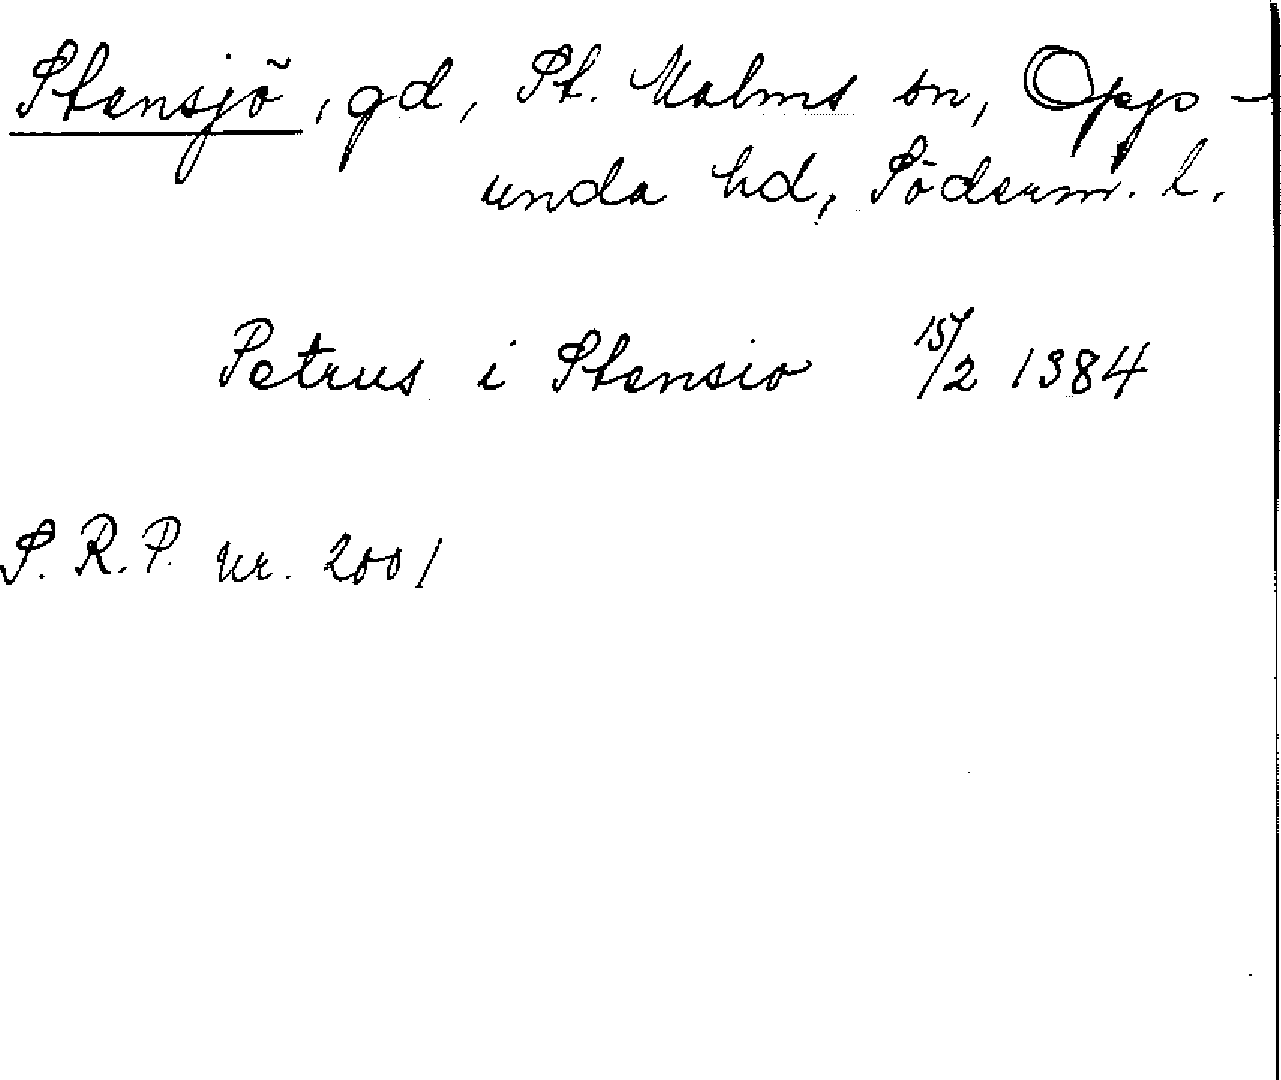 Stensjö, gd, St. Malms sn, Opp-
unda hd, Söderm. l.
Petrus i Stensio 15/2 1384
S. R. P. nr. 2001